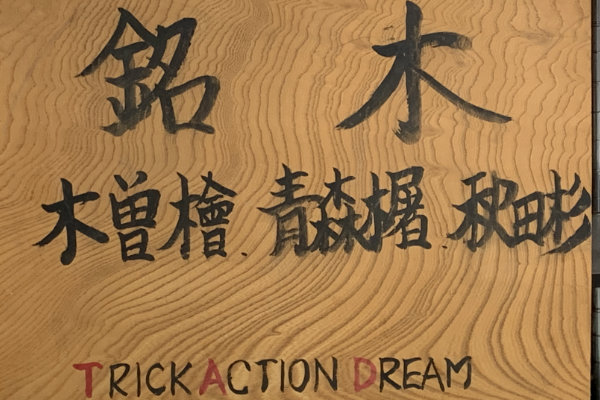 銘木
木曽檜.青森.秋田杉
TRICK ACTION DREAM